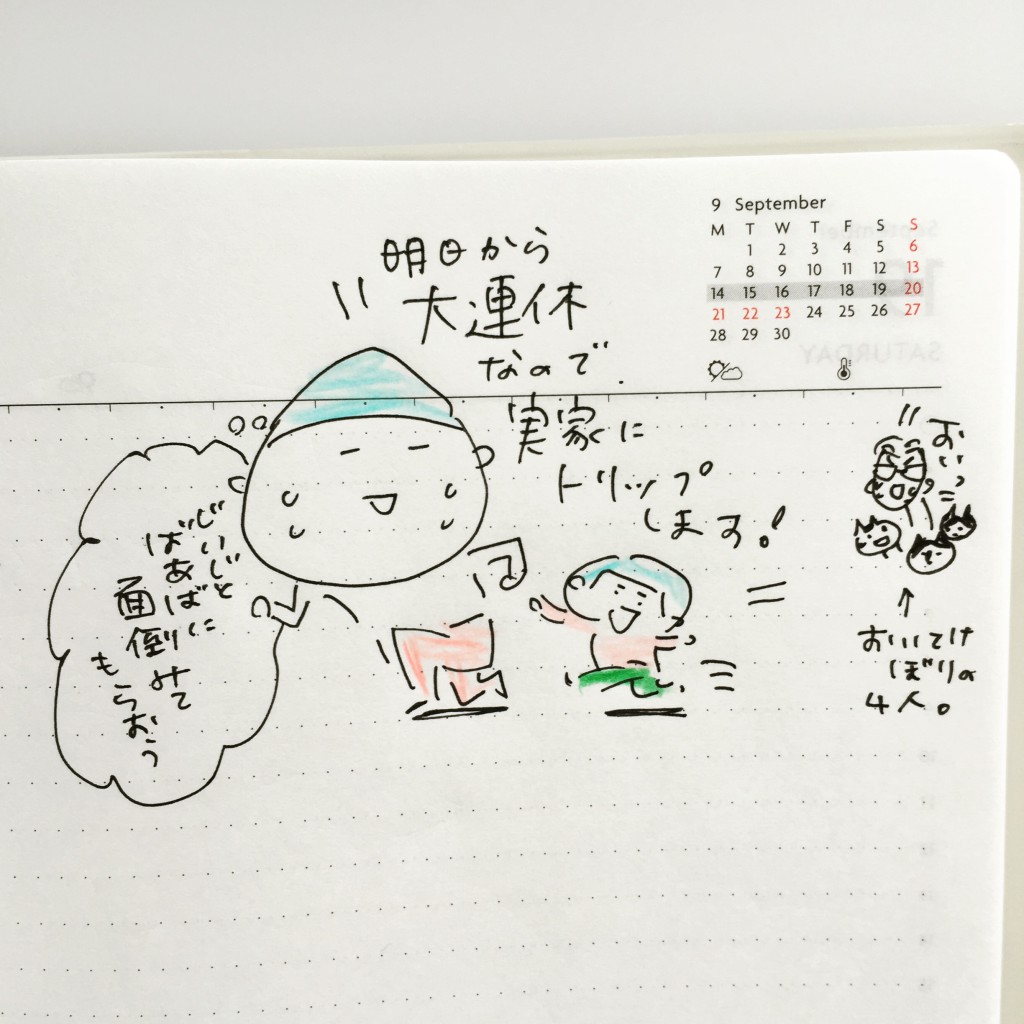 9 September
M T W T F S S
1 2 3 4 5 6
7 8 9 10 11 12 13
14 15 16 17 18 19 20
21 22 23 24 25 26 27
28 29 30
明日から
大連休
なので、
実家に
トリップ
します!
じいじと
ばあばに
面倒みて
もらおう
おいっ
おいてけ
ぼりの
4人。
SATURDAY